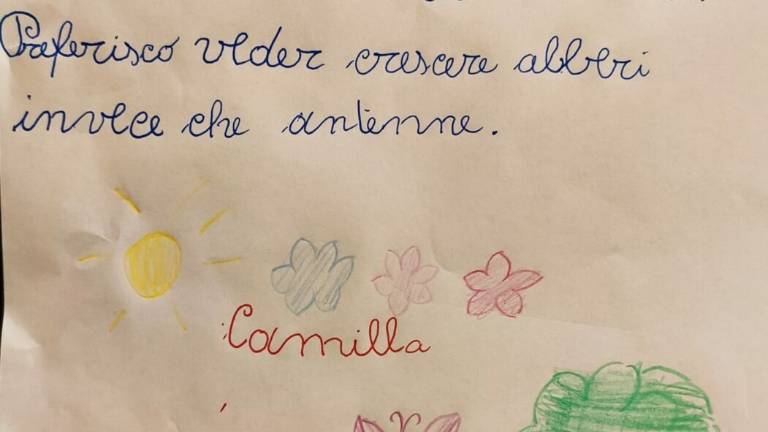 Preferisco veder crescere alberi
invece che antenne.
Camilla